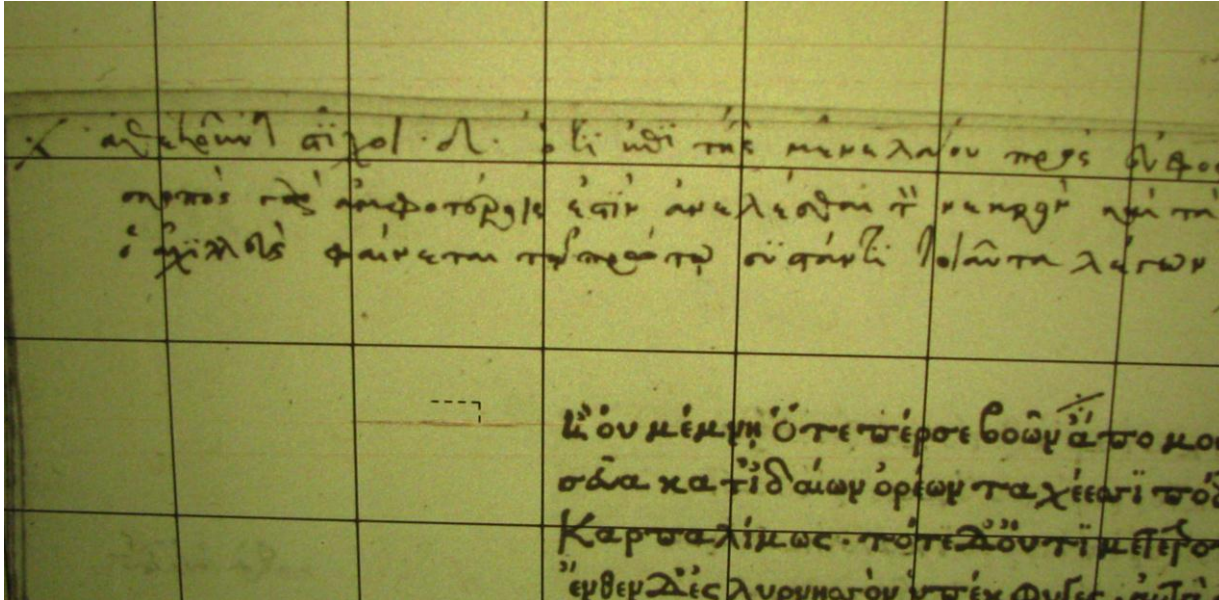 ἀθετοῦνται στίχοι δ· ὅτι ἐπὶ τῆς μενελάου πρὸς εὔφορ
σκοπὸς γὰρ ἀμφοτέροις ἐστὶν ἀνελέσθαι τὸν νεκρὸν καὶ τὰ
ὁ ἀχιλλεὺς φαίνεται τῷ πρώτῳ συστάντι τοιαῦτα λέγων
οὐ μέμνῃ ὅτε πέρ σε βοῶν ἄπο μου
σεῦα κατ ἰδαίων ὀρέων ταχέεσσι πόδ
Καρπαλίμως· τότε δ οὔ τι μετατρο
ἔνθεν δ ἐς λυρνησσὸν ὑπέκφυγες· αὐτὰ